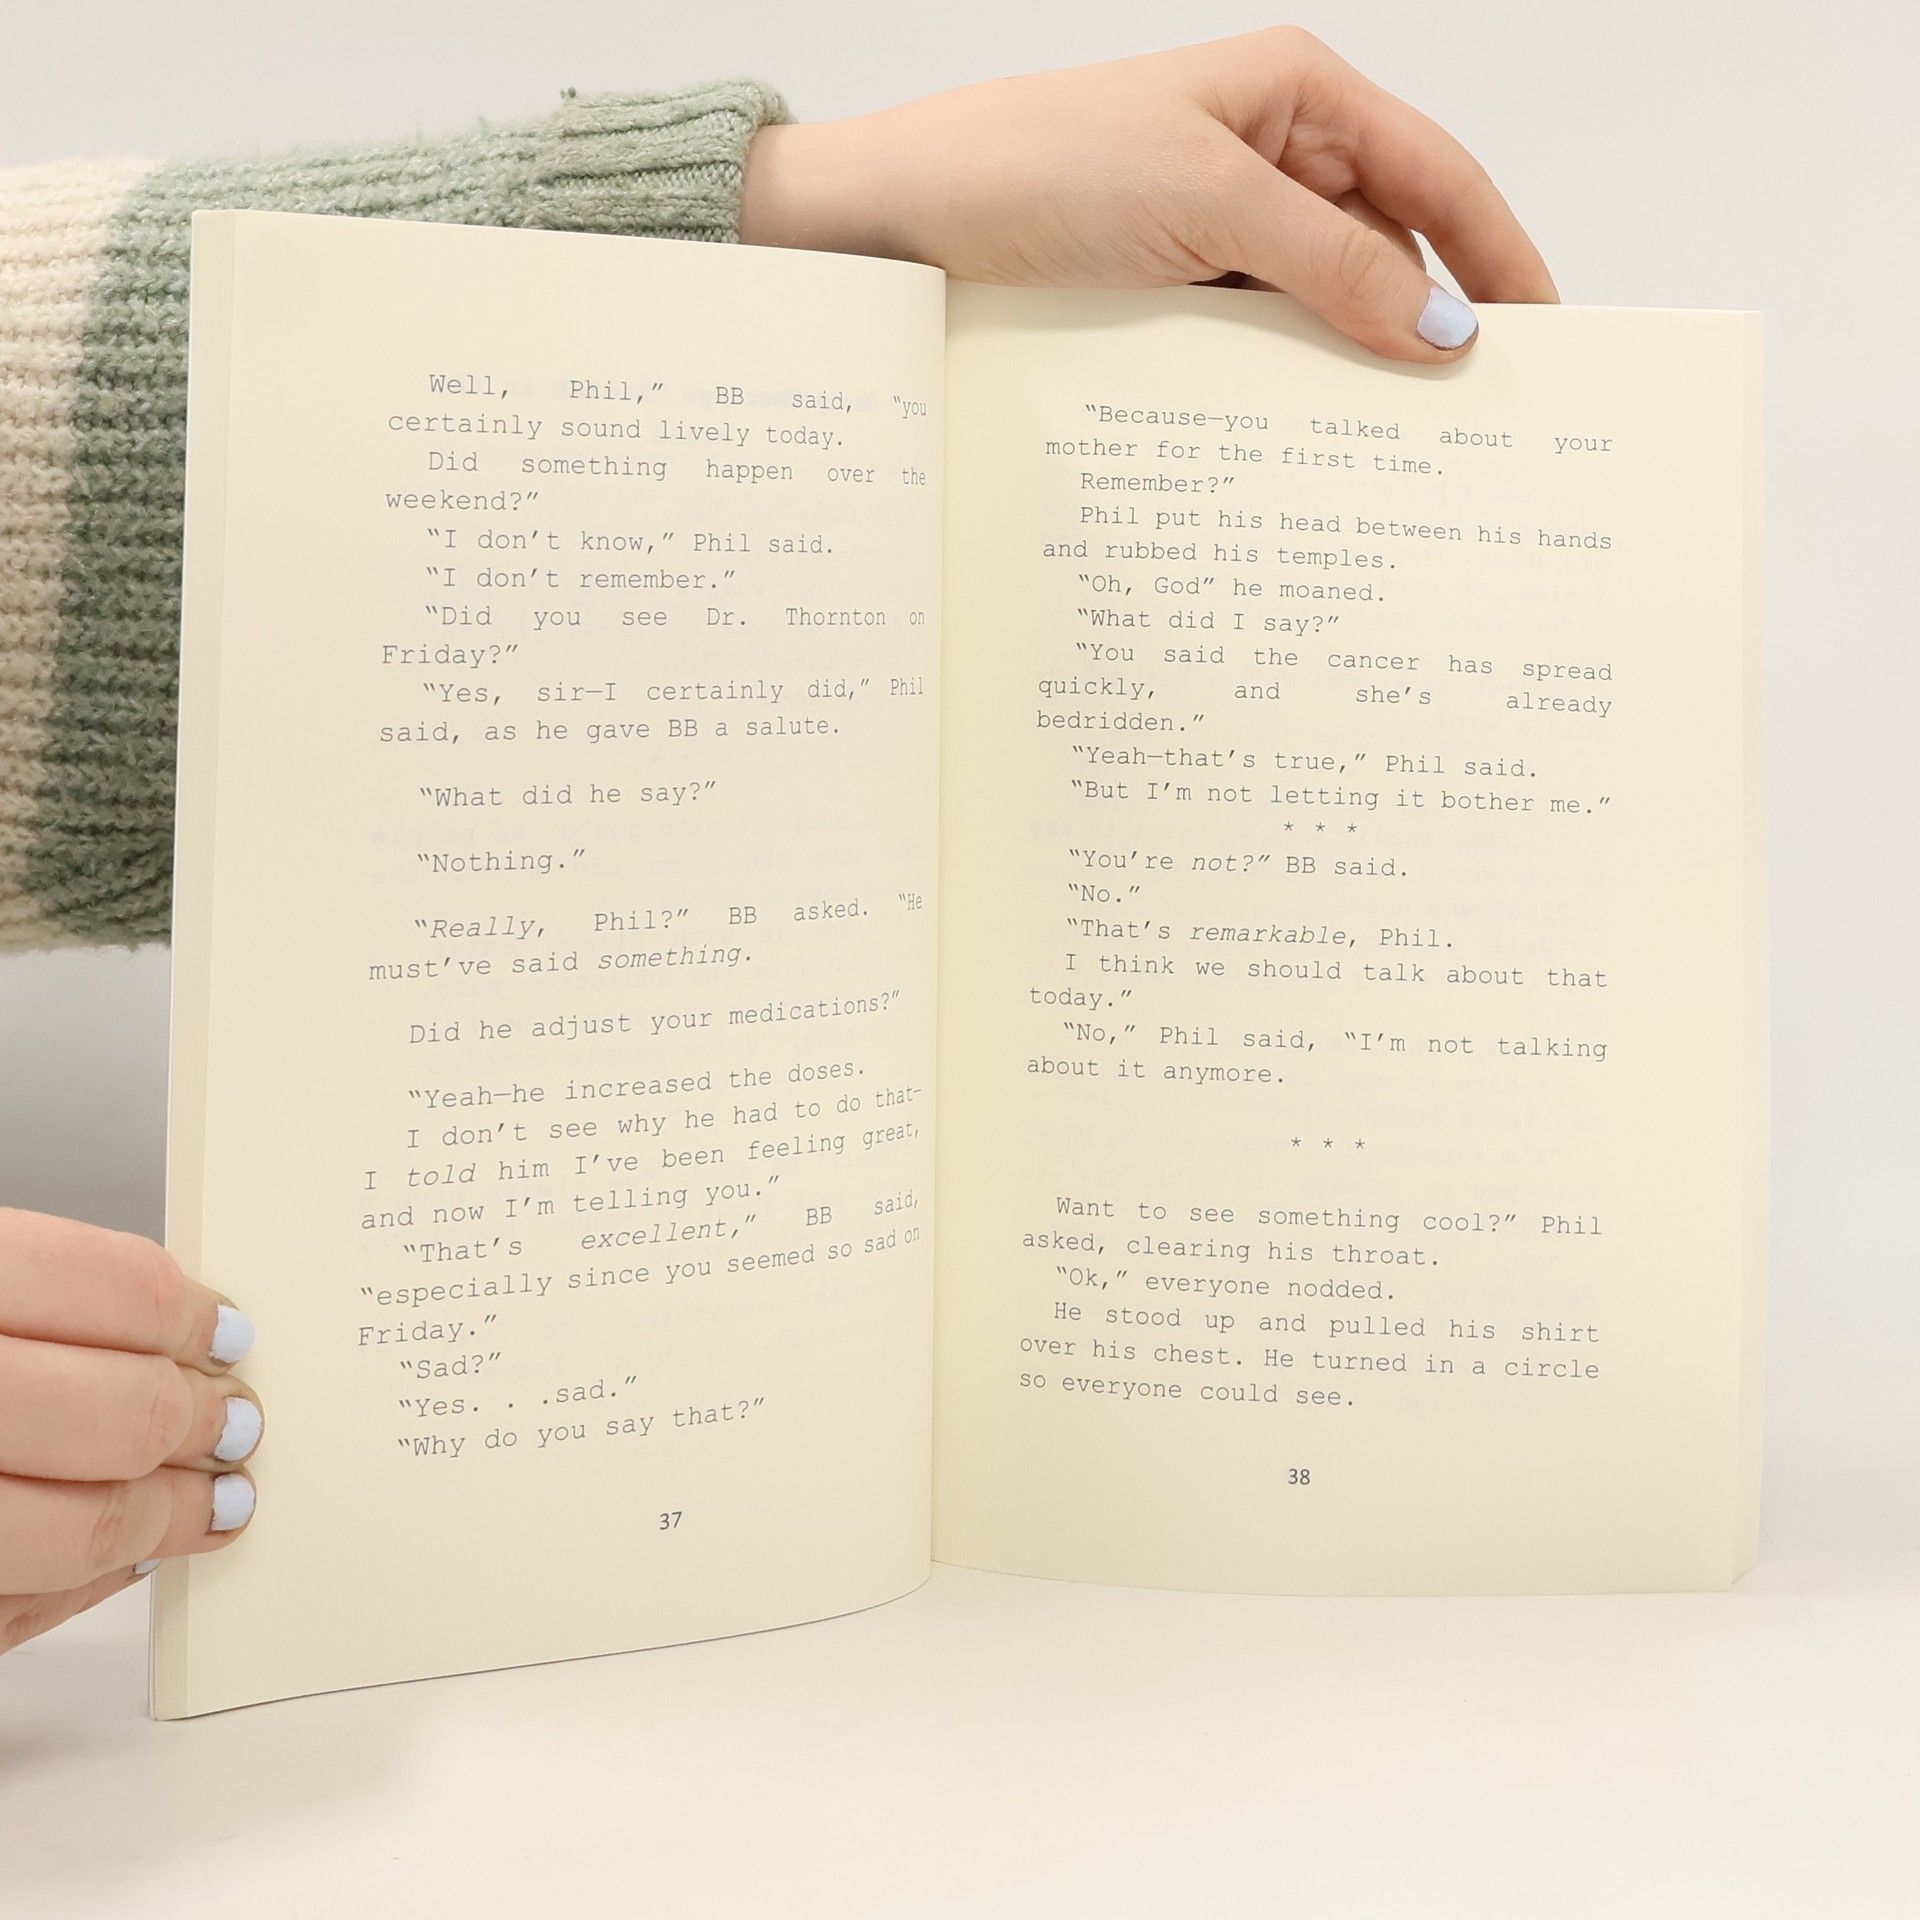 Well, Phil,” BB said, “you
certainly sound lively today.
Did something happen over the
weekend?”
“I don’t know,” Phil said.
“I don’t remember.”
“Did you see Dr. Thornton on
Friday?”
“Yes, sir—I certainly did,” Phil
said, as he gave BB a salute.
“What did he say?”
“Nothing.”
“Really, Phil?” BB asked. “He
must’ve said something.
Did he adjust your medications?”
“Yeah—he increased the doses.
I don’t see why he had to do that—
I told him I’ve been feeling great,
and now I’m telling you.”
“That’s excellent,” BB said,
“especially since you seemed so sad on
Friday.”
“Sad?”
“Yes. . .sad.”
“Why do you say that?”
37
“Because—you talked about your
mother for the first time.
Remember?”
Phil put his head between his hands
and rubbed his temples.
“Oh, God” he moaned.
“What did I say?”
“You said the cancer has spread
quickly, and she’s already
bedridden.”
“Yeah—that’s true,” Phil said.
“But I’m not letting it bother me.”
* * *
“You’re not?” BB said.
“No.”
“That’s remarkable, Phil.
I think we should talk about that
today.”
“No,” Phil said, “I’m not talking
about it anymore.
* * *
Want to see something cool?” Phil
asked, clearing his throat.
“Ok,” everyone nodded.
He stood up and pulled his shirt
over his chest. He turned in a circle
so everyone could see.
38